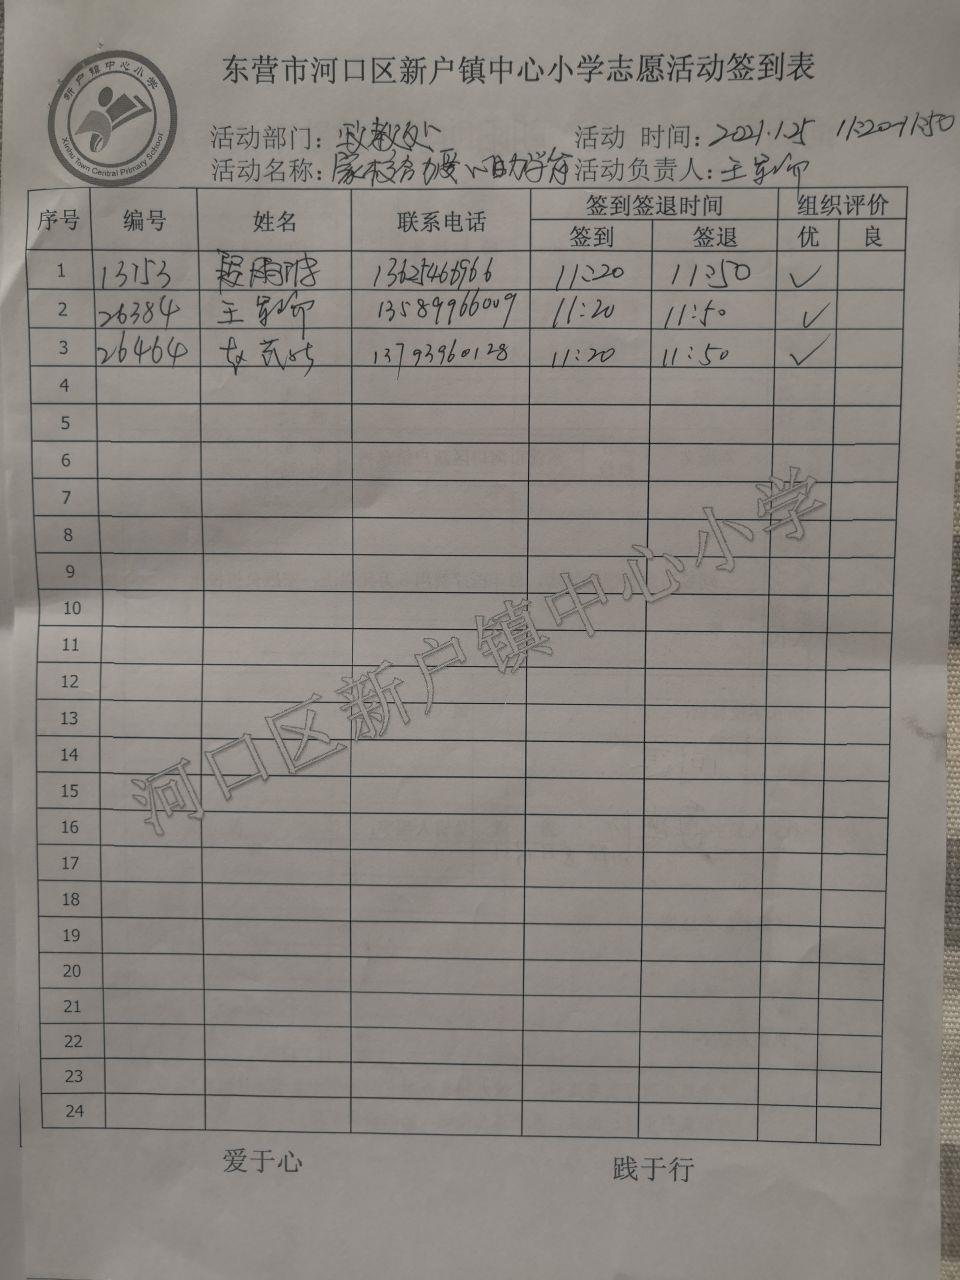 新户镇中心小学
Xinhu Town Central Primary School
东营市河口区新户镇中心小学志愿活动签到表
活动部门：政教处 活动 时间：2021.1.25 11:20-11:50
活动名称：家校合力爱心助学 活动负责人：王
序号 编号 姓名 联系电话 签到签退时间 组织评价
签到 签退 优 良
1 13153 段雨 13625466966 11:20 11:50 ✓
2 26384 王 13589966009 11:20 11:50 ✓
3 26464 13793960128 11:20 11:50 ✓
4
5
6
7
8
9
10
11
12
13
14
15
16
17
18
19
20
21
22
23
24
河口区新户镇中心小学
爱于心 践于行